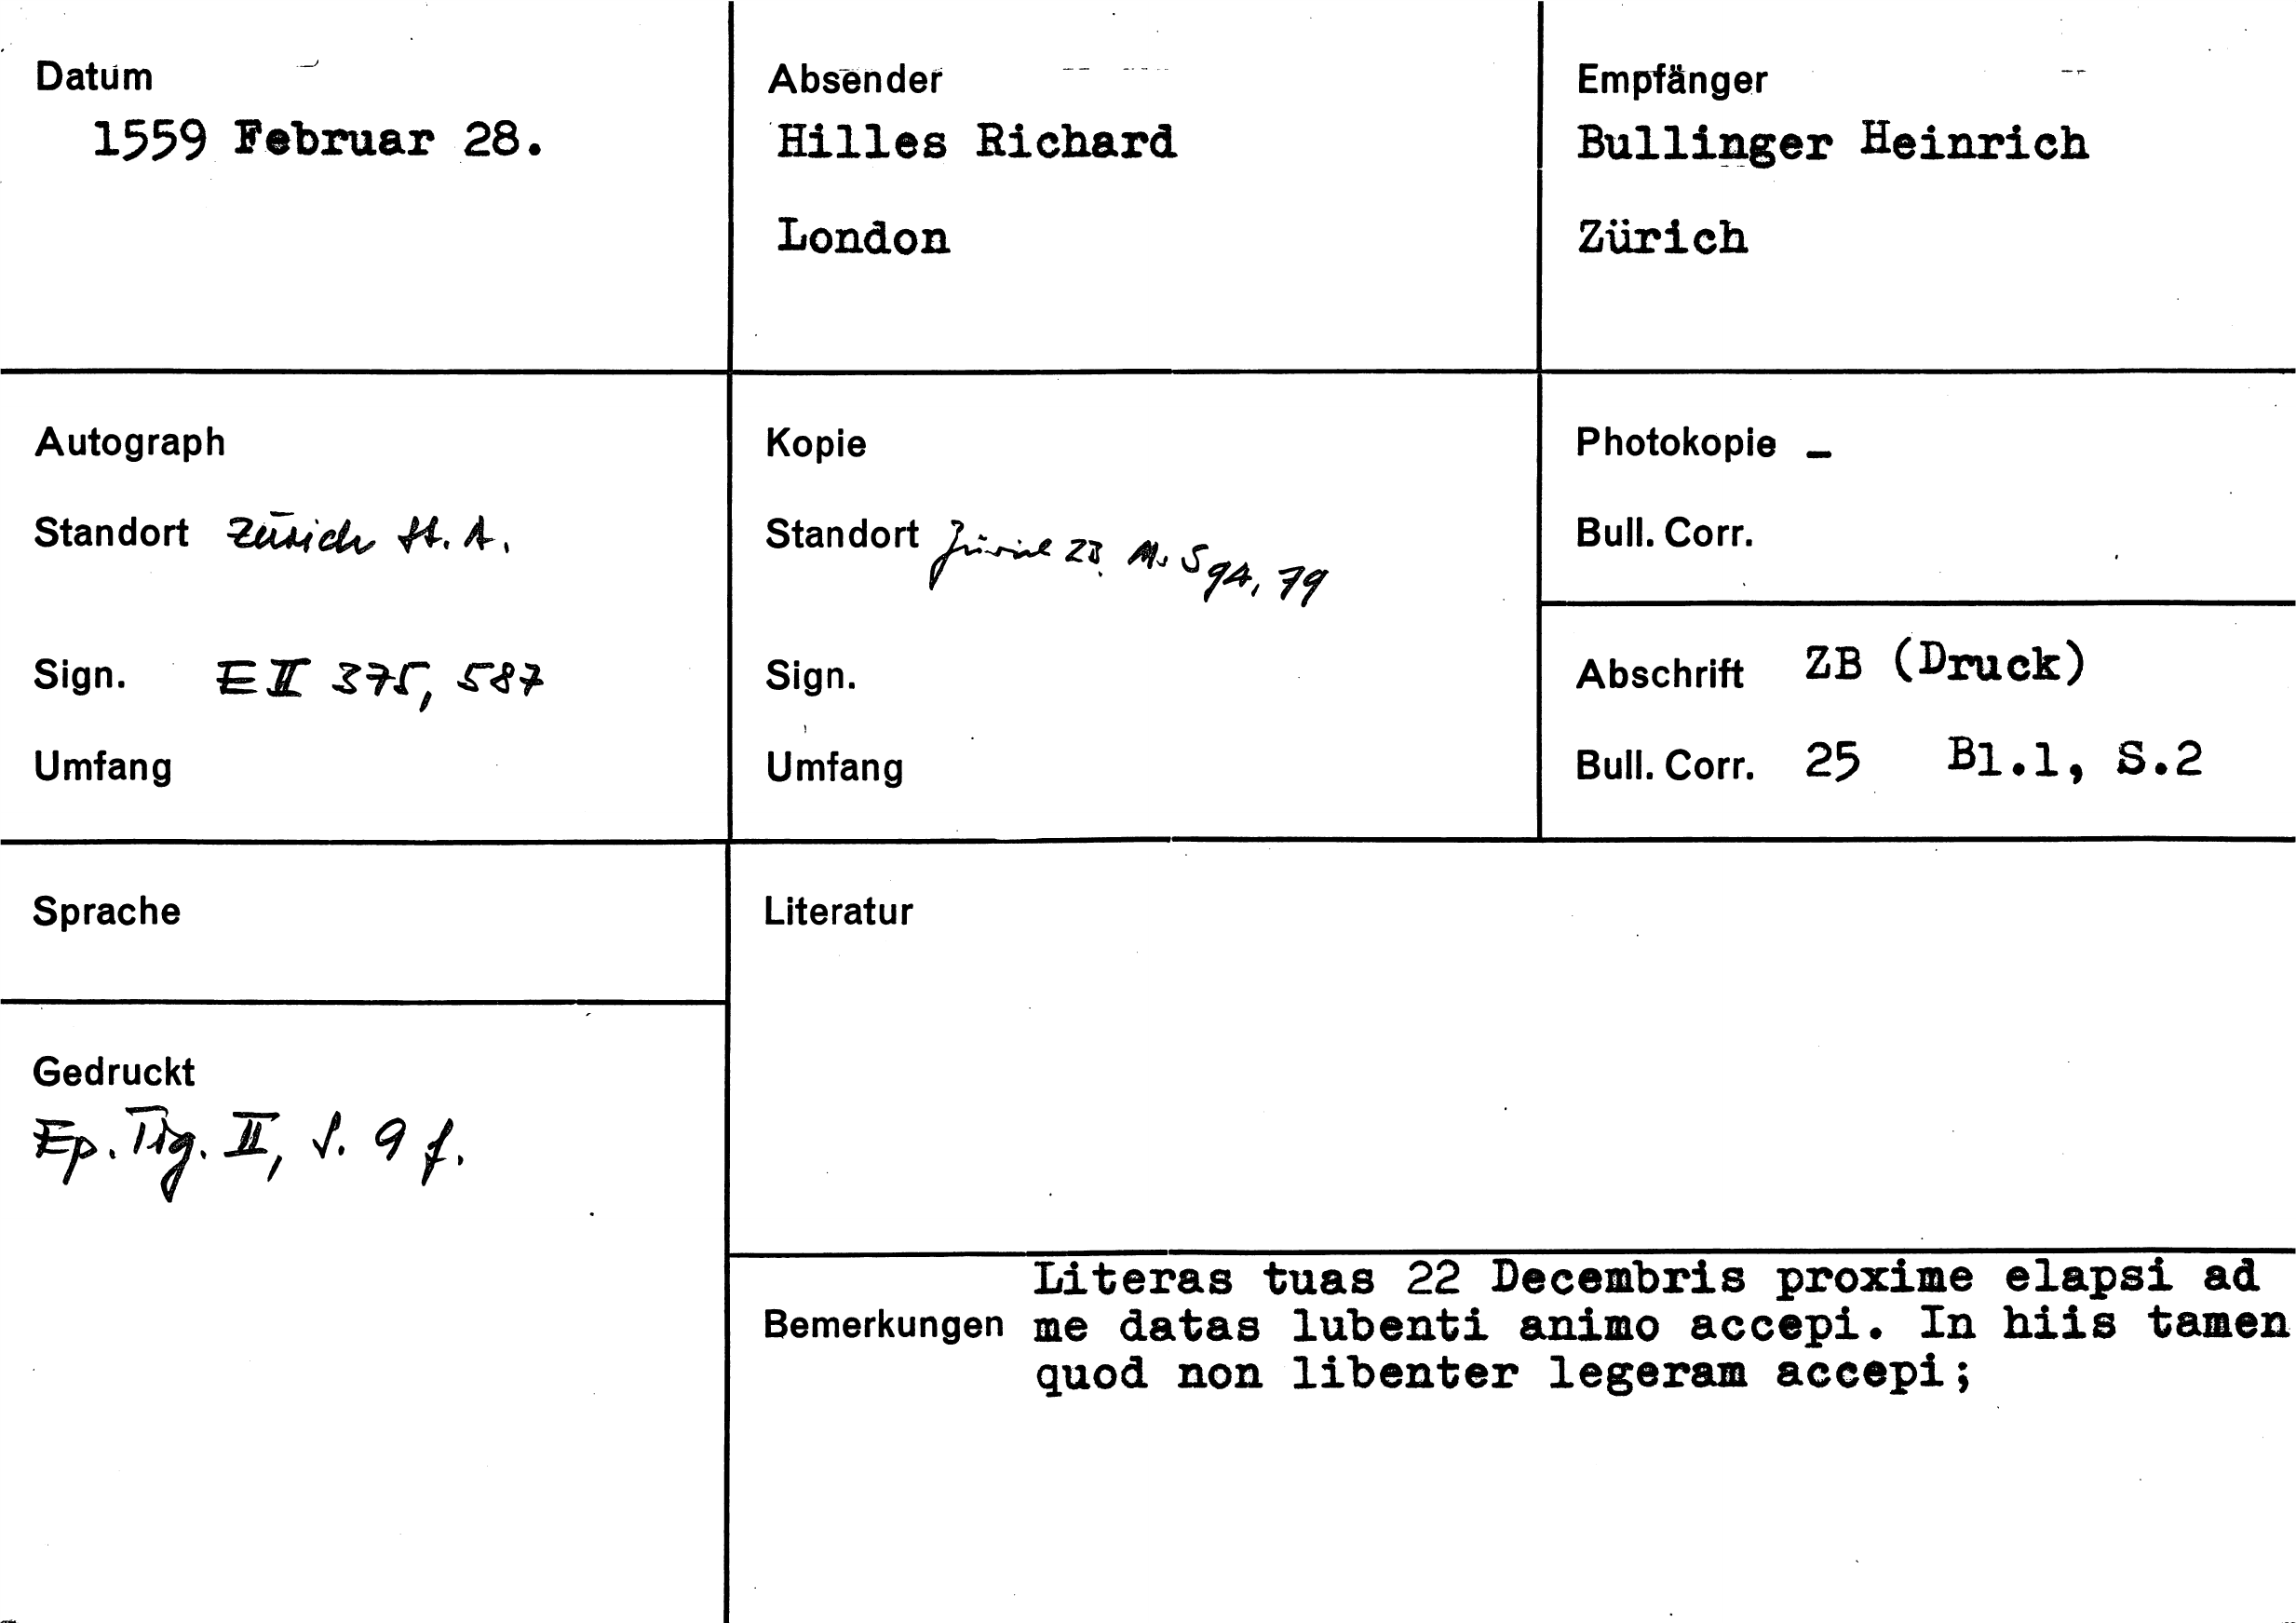 Datum
1559 Februar 28.
Absender
Hilles Richard
London
Empfänger
Bullinger Heinrich
Zürich
Autograph
Standort Zürich St. A.
Sign. E II 375, 587
Umfang
Kopie
Standort Zürich ZB. Ms S 94, 79
Sign.
Umfang
Photokopie –
Bull. Corr.
Abschrift ZB (Druck)
Bull. Corr. 25 Bl.1, S.2
Sprache
Gedruckt
Ep. Tig. II, S. 9 f.
Literatur
Bemerkungen
Literas tuas 22 Decembris proxime elapsi ad
me datas lubenti animo accepi. In hiis tamen
quod non libenter legeram accepi;